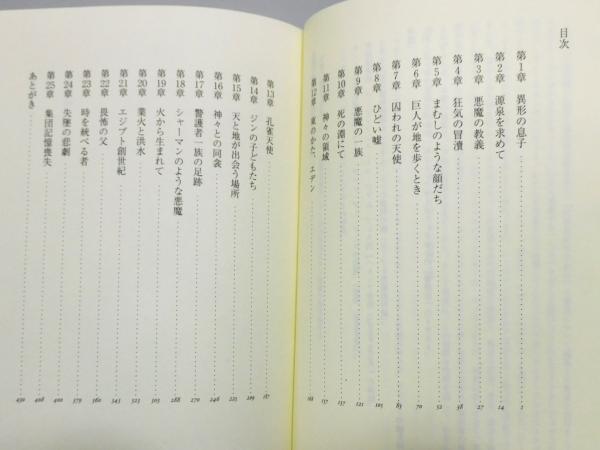 目次
第1章 異形の息子 1
第2章 源泉を求めて 14
第3章 悪魔の教義 27
第4章 狂気の冒瀆 38
第5章 まむしのような顔だち 52
第6章 巨人が地を歩くとき 70
第7章 囚われの天使 83
第8章 ひどい嘘 105
第9章 悪魔の一族 121
第10章 死の淵にて 137
第11章 神々の領域 157
第12章 東のかた、エデン
第13章 孔雀天使 187
第14章 ジンの子どもたち 209
第15章 天と地が出会う場所 225
第16章 神々との同衾 246
第17章 警護者一族の足跡 270
第18章 シャーマンのような悪魔 288
第19章 火から生まれて 303
第20章 業火と洪水 323
第21章 エジプト創世紀 343
第22章 畏怖の父 360
第23章 時を統べる者 379
第24章 失墜の悲劇 400
第25章 集団記憶喪失 408
あとがき 430